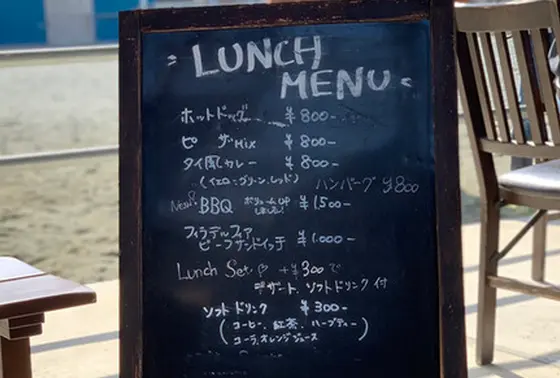 LUNCH
MENU
ホットドッグ ¥800-
ピザMix ¥800-
タイ風カレー ¥800-
(イエロー・グリーン、レッド) ハンバーグ ¥800
New! BBQ ボリュームUPしました! ¥1500-
フィラデルフィア
ビーフサンドイッチ ¥1.000-
Lunch Set♡ +¥300で
デザート、ソフトドリンク付
ソフトドリンク ¥300-
(コーヒー、紅茶、ハーブティー
コーラ、オレンジジュース)